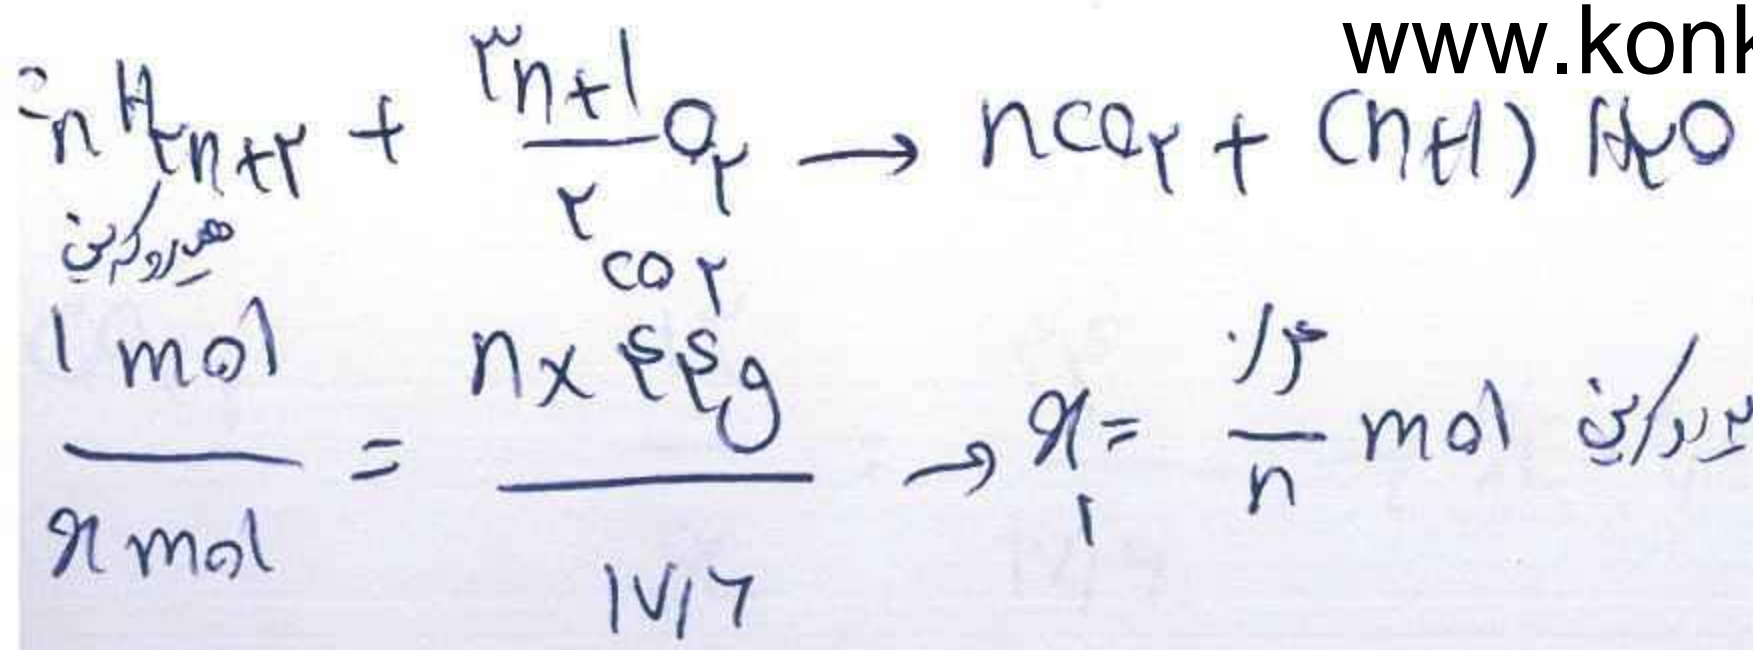 www.konk
nH۲n+۲ + ۳n+1/۲ O۲ → nCO۲ + (n+1) H۲O
هیدروکربن CO۲
۱ mol / x mol = n×۴۴g / ۱۷/۶ → x۱ = ۰/۴ / n mol